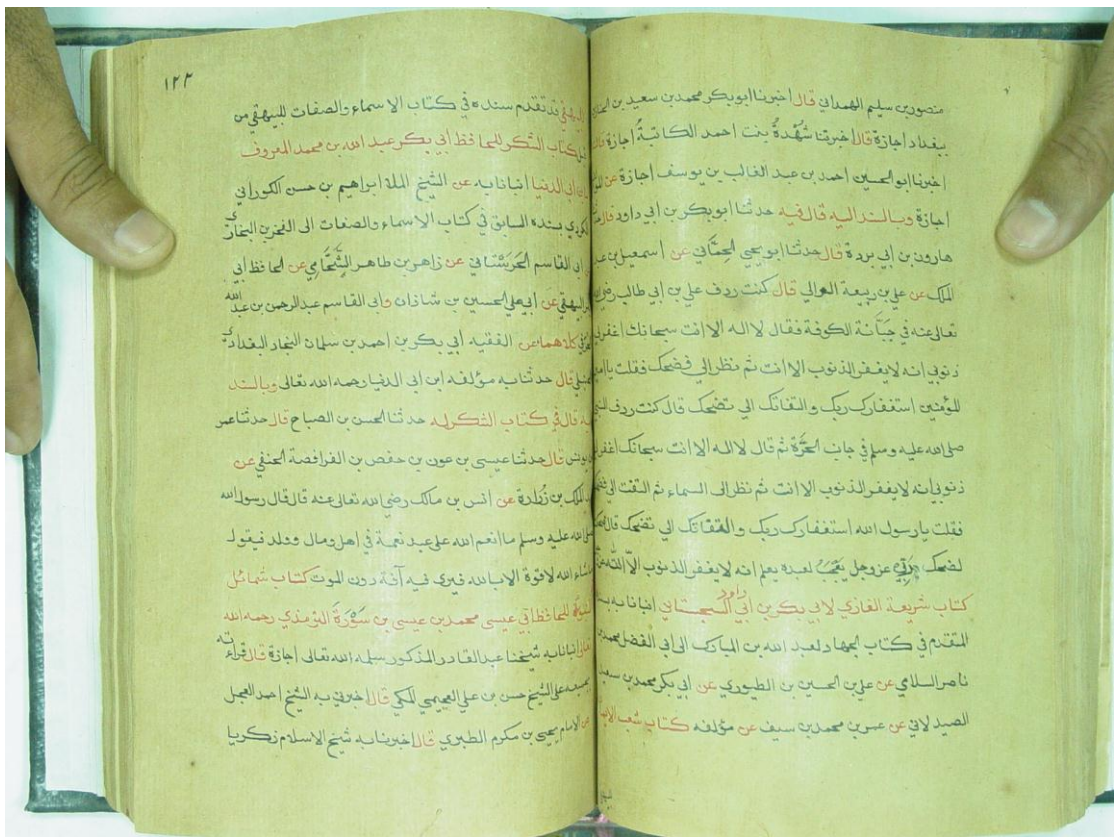 منصور بن سليم الهمداني قال اخبرنا ابو بكر محمد بن سعيد بن
ببغداد اجازة قال اخبرتنا شُهْدةُ بنت احمد الكاتبةُ اجازة
اخبرنا ابو الحسين احمد بن عبد الغالب بن يوسف اجازة عن
اجازة وبالسند اليه قال فيه حدثنا ابو بكر بن ابي داود قال
هارون بن ابي بردة قال حدثنا ابو يحيى الحِمَّاني عن اسمعيل بن
الملك عن علي بن ربيعة الوالي قال كنت ردف علي بن ابي طالب رضي
تعالى عنه في جَبَّانة الكوفة فقال لا اله الا انت سبحانك اغفر لي
ذنوبي انه لا يغفر الذنوب الا انت ثم نظر الي فضحك فقلت يا امير
المؤمنين استغفارك ربك والتفاتك الي تضحك قال كنت ردف
صلى الله عليه وسلم في جانب الحَرَّة ثم قال لا اله الا انت سبحانك اغفر لي
ذنوبي انه لا يغفر الذنوب الا انت ثم نظر الى السماء ثم التفت الي
فقلت يا رسول الله استغفارك ربك والتفاتك الي تضحك قال
لضحك ربي عز وجل يَعْجَبُ لعبده يعلم انه لا يغفر الذنوب الا
كتاب شريعة الغازي لابي بكر بن ابي داود السجستاني انبانا به
المتقدم في كتاب الجهاد لعبد الله بن المبارك الى ابي الفضل محمد بن
ناصر السلامي عن علي بن الحسين بن الطيوري عن ابي بكر محمد بن
الصيدلاني عن عمر بن محمد بن سيف عن مؤلفه كتاب شعب
١٢٣
البيهقي قد تقدم سنده في كتاب الاسماء والصفات للبيهقي من
كتاب الشكر للحافظ ابي بكر عبد الله بن محمد المعروف
ابي الدنيا انبانا به عن الشيخ الملا ابراهيم بن حسن الكوراني
بسنده السابق في كتاب الاسماء والصفات الى الفخر بن البخاري
ابي القاسم الحَرَسْتَاني عن زاهر بن طاهر الشَّحَّامي عن الحافظ ابي
البيهقي عن ابي علي الحسين بن شاذان وابي القاسم عبد الرحمن بن عبد الله
كلاهما عن الفقيه ابي بكر بن احمد بن سلمان النجار البغدادي
قال حدثنا به مؤلفه ابن ابي الدنيا رحمه الله تعالى وبالسند
قال في كتاب الشكر له حدثنا الحسن بن الصباح قال حدثنا عمر
يونس قال حدثنا عيسى بن عون بن حفص بن الفرافصة الحنفي عن
الملك بن زُرارة عن انس بن مالك رضي الله تعالى عنه قال قال رسول الله
صلى الله عليه وسلم ما انعم الله على عبد نعمة في اهل ومال وولد فيقول
شاء الله لا قوة الا بالله فيرى فيه آفة دون الموت كتاب شمائل
للحافظ ابي عيسى محمد بن عيسى بن سَوْرَةَ الترمذي رحمه الله
انبانا به شيخنا عبد القادر المذكور سلمه الله تعالى اجازة قال قراءته
بجميعه على الشيخ حسن بن علي العجيمي المكي قال اخبرني به الشيخ احمد العجل
عن الامام يحيى بن مكرم الطبري قال اخبرنا به شيخ الاسلام زكريا